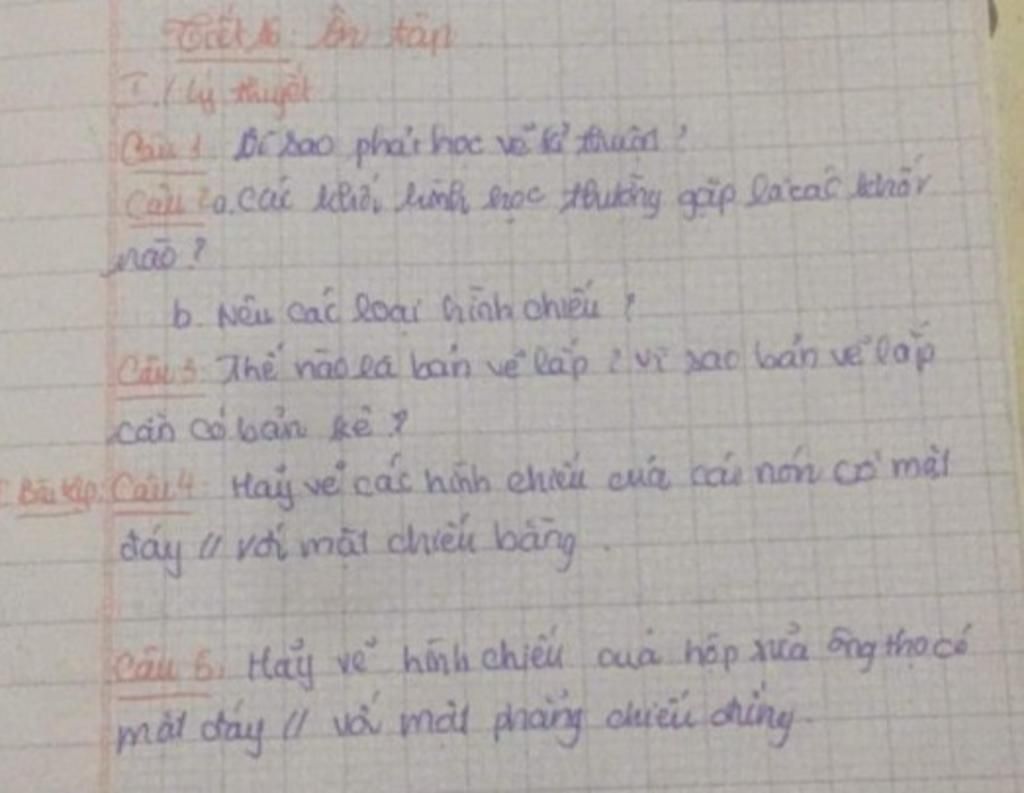 Tiết 16: Ôn tập
I./ Lý thuyết
Câu 1 Vì sao phải học vẽ kĩ thuật?
Câu 2 a. Các khối hình học thường gặp là các khối
nào?
b. Nêu các loại hình chiếu?
Câu 3 Thế nào là bản vẽ lắp? Vì sao bản vẽ lắp
cần có bản kê?
Bài tập: Câu 4 Hãy vẽ các hình chiếu của cái nón có mặt
đáy // với mặt chiếu bằng.
Câu 5. Hãy vẽ hình chiếu của hộp sữa ông thọ có
mặt đáy // với mặt phẳng chiếu đứng.